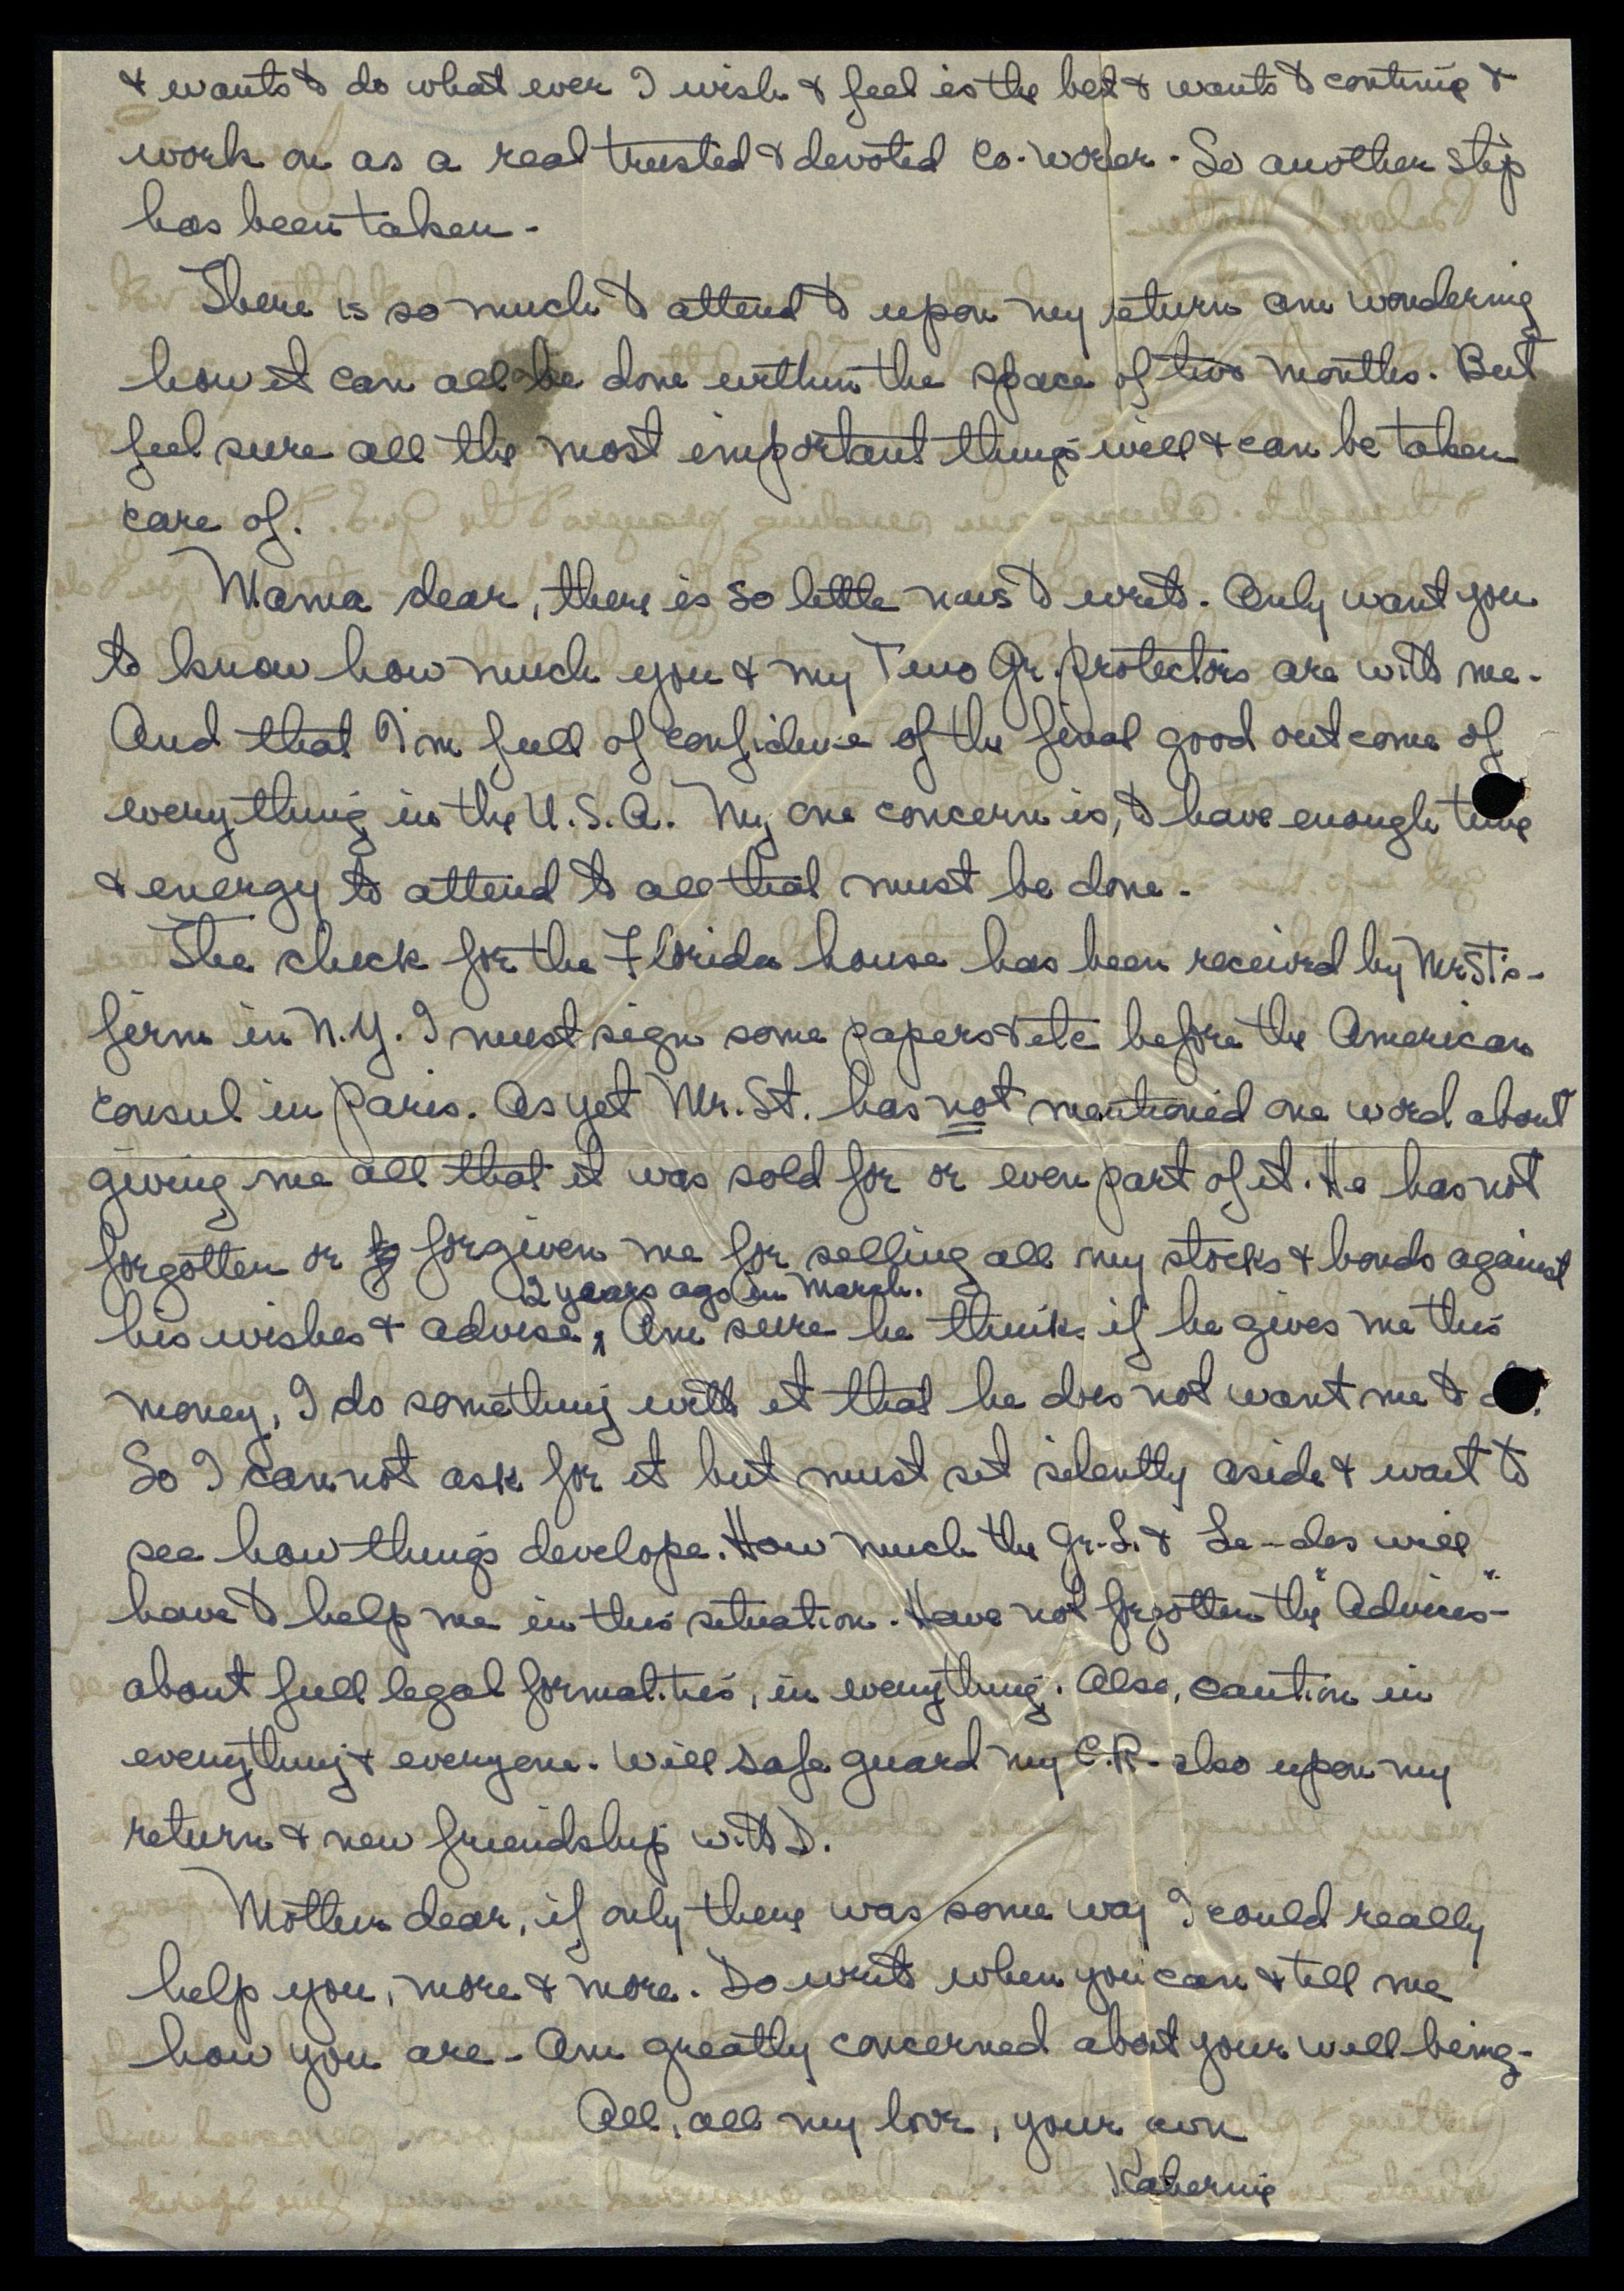 & wants to do what ever I wish & feel is the best & wants to continue &
work on as a real trusted & devoted co-worker. So another step
has been taken.
There is so much to attend to upon my return am wondering
how it can all be done within the space of two months. But
feel sure all the most important things will & can be taken
care of.
Mama dear, there is so little news to write. Only want you
to know how much you & my Two Gr. Protectors are with me.
And that I'm full of confidence of the final good outcome of
everything in the U.S.A. My one concern is, to have enough time
& energy to attend to all that must be done.
The check for the Florida house has been received by Mr St's-
firm in N.Y. I must sign some papers & etc before the American
consul in Paris. As yet Mr. St. has not mentioned one word about
giving me all that it was sold for or even part of it. He has not
forgotten or forgiven me for selling all my stocks & bonds against
2 years ago in March.
his wishes & advise, Am sure he thinks if he gives me this
money, I do something with it that he does not want me to
So I cannot ask for it but must sit silently aside & wait to
see how things develope. How much the Gr. L. & Le-des will
have to help me in this situation. Have not forgotten the "Advices"
about full legal formalities, in everything. Also, caution in
everything & everyone. Will safe guard my C.R. also upon my
return & new friendship with D.
Mother dear, if only there was some way I could really
help you, more & more. Do write when you can & tell me
how you are - Am greatly concerned about your well-being.
All, all my love, your own
Katherine